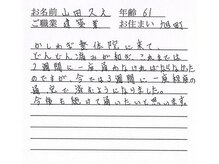 お名前 山田久夫 年齢 61
ご職業 建築業 お住まい 旭町
かしわぎ整体院に来て、
だんだん痛みが和ぎ、これまでは
2週間に一度通わなければならなかった
のですが、今では3週間に一度程度の
通院で済むようになりました。
今後も続けて通いたいと思います。